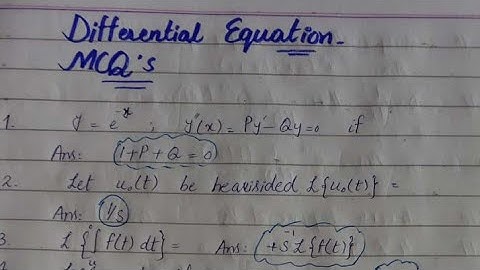 Differential Equation
MCQ's
1. y = e^-x ; y''(x) = Py' - Qy = 0 if
Ans: 1+P+Q = 0
2. Let u₀(t) be heavisided L{u₀(t)} =
Ans: 1/s
3. L{∫ f(t) dt} = Ans: +S^-1 L{f(t)}